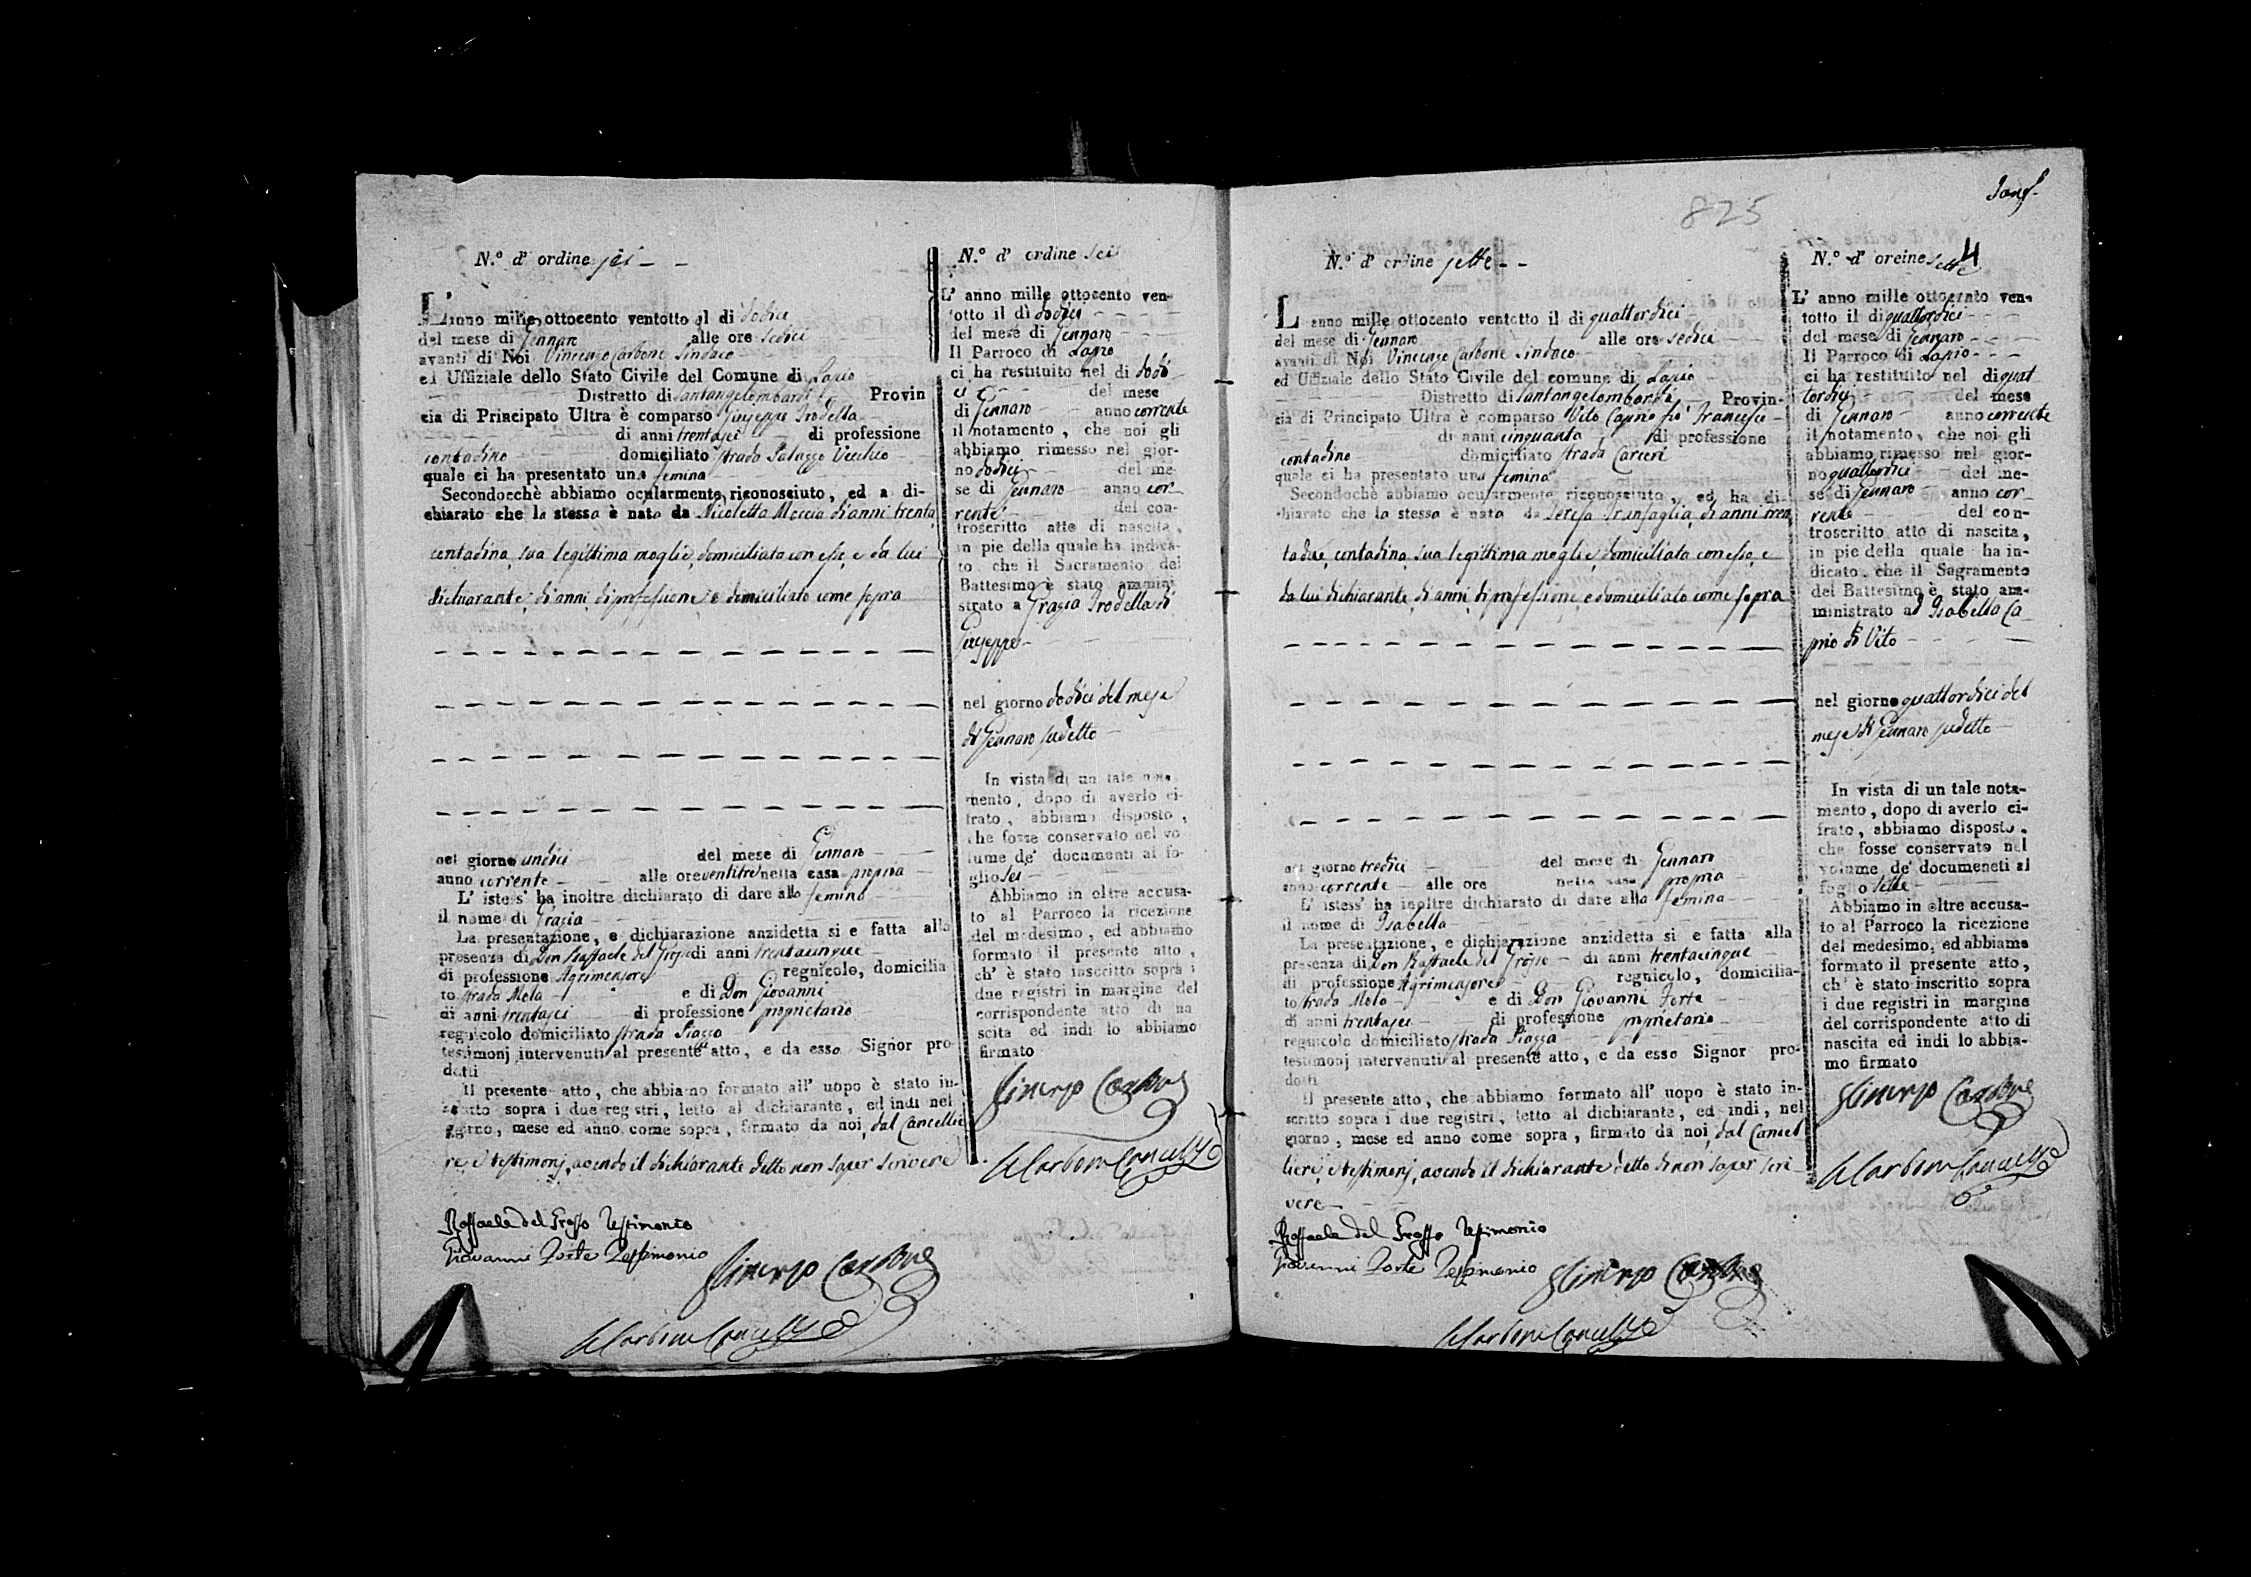 N.° d' ordine sei
L' anno mille ottocento ventotto il di dodici
del mese di Gennaro alle ore sedici
avanti di Noi Vincenzo Carbone Sindaco
ed Uffiziale dello Stato Civile del Comune di Lapio
Distretto di Santangelombardi Provin
cia di Principato Ultra è comparso Giuseppe Trodella
di anni trentasei di professione
contadino domiciliato strada Palazzo Vecchio
quale ci ha presentato una femina
Secondocchè abbiamo ocularmente riconosciuto, ed a di-
chiarato che la stessa è nata da Nicoletta Moccia di anni trenta
contadina, sua legittima moglie, domiciliata con esso, e da lui
dichiarante, di anni, di professione, e domiciliato come sopra
nel giorno undici del mese di Gennaro
anno corrente alle ore ventitre nella casa propria
L' istess' ha inoltre dichiarato di dare alla femina
il nome di Grazia
La presentazione, e dichiarazione anzidetta si e fatta alla
presenza di Don Raffaele del Grosso di anni trentacinque
di professione Agrimensore regnicolo, domicilia
to strada Mela e di Don Giovanni
di anni trentasei di professione proprietario
regnicolo domiciliato strada Piazza
testimonj intervenuti al presente atto, e da esso Signor pro-
dotti
Il presente atto, che abbiamo formato all' uopo è stato in-
scritto sopra i due registri, letto al dichiarante, ed indi nel
giorno, mese ed anno come sopra, firmato da noi, dal Cancellie
re, e testimonj, avendo il dichiarante detto non saper scrivere
Raffaele del Grosso Testimonio
Giovanni Forte Testimonio
Vincenzo Carbone
Carbone Cancelliere
N.° d' ordine sei
L' anno mille ottocento ven-
totto il dì dodici
del mese di Gennaro
Il Parroco di Lapio
ci ha restituito nel di dodi
ci del mese
di Gennaro anno corrente
il notamento, che noi gli
abbiamo rimesso nel gior-
no dodici del me-
se di Gennaro anno cor
rente del con-
troscritto atto di nascita,
in pie della quale ha indica-
to che il Sacramento del
Battesimo è stato ammini
strato a Grazia Trodella di
Giuseppe
nel giorno dodici del mese
di Gennaro sudetto
In vista di un tale nota
mento, dopo di averlo ci-
frato, abbiamo disposto,
che fosse conservato nel vo
lume de' documenti al fo-
glio sei
Abbiamo in oltre accusa-
to al Parroco la ricezione
del medesimo, ed abbiamo
formato il presente atto,
ch' è stato inscritto sopra i
due registri in margine del
corrispondente atto di na
scita ed indi lo abbiamo
firmato
Vincenzo Carbone
Carbone Cancelliere
825
N.° d' ordine sette
L' anno mille ottocento ventotto il di quattordici
del mese di Gennaro alle ore sedici
avanti di Noi Vincenzo Carbone Sindaco
ed Uffiziale dello Stato Civile del comune di Lapio
Distretto di Santangelombardi Provin-
cia di Principato Ultra è comparso Vito Caprio fu Francesco
di anni cinquanta di professione
contadino domiciliato strada Carceri
quale ci ha presentato una femina
Secondochè abbiamo ocularmente riconosciuto, ed ha di-
chiarato che la stessa è nata da Teresa Tranfaglia, di anni tren
tadue, contadina, sua legittima moglie, domiciliata con esso, e
da lui dichiarante, di anni, di professione, e domiciliato come sopra
nel giorno tredici del mese di Gennaro
anno corrente alle ore nella casa propria
L' istess' ha inoltre dichiarato di dare alla femina
il nome di Isabella
La presentazione, e dichiarazione anzidetta si e fatta alla
presenza di Don Raffaele del Grosso di anni trentacinque
di professione Agrimensore regnicolo, domicilia-
to strada Mela e di Don Giovanni Forte
di anni trentasei di professione proprietario
regnicolo domiciliato strada Piazza
testimonj intervenuti al presente atto, e da esso Signor pro-
dotti
Il presente atto, che abbiamo formato all' uopo è stato in-
scritto sopra i due registri, letto al dichiarante, ed indi, nel
giorno, mese ed anno come sopra, firmato da noi, dal Cancel
liere, e testimonj, avendo il dichiarante detto di non saper scri
vere
Raffaele del Grosso Testimonio
Giovanni Forte Testimonio
Vincenzo Carbone
Carbone Cancelliere
4
N.° d' oreine sette
L' anno mille ottocento ven-
totto il di quattordici
del mese di Gennaro
Il Parroco di Lapio
ci ha restituito nel di quat
tordici del mese
di Gennaro anno corrente
il notamento, che noi gli
abbiamo rimesso nel gior-
no quattordici del me-
se di Gennaro anno cor
rente del con-
troscritto atto di nascita,
in pie della quale ha in-
dicato che il Sagramento
del Battesimo è stato am-
ministrato ad Isabella Ca
prio di Vito
nel giorno quattordici del
mese di Gennaro sudetto
In vista di un tale nota-
mento, dopo di averlo ci-
frato, abbiamo disposto,
che fosse conservato nel
volume de' documeneti al
foglio sette
Abbiamo in oltre accusa-
to al Parroco la ricezione
del medesimo, ed abbiamo
formato il presente atto,
ch' è stato inscritto sopra
i due registri in margine
del corrispondente atto di
nascita ed indi lo abbia-
mo firmato
Vincenzo Carbone
Carbone Cancelliere